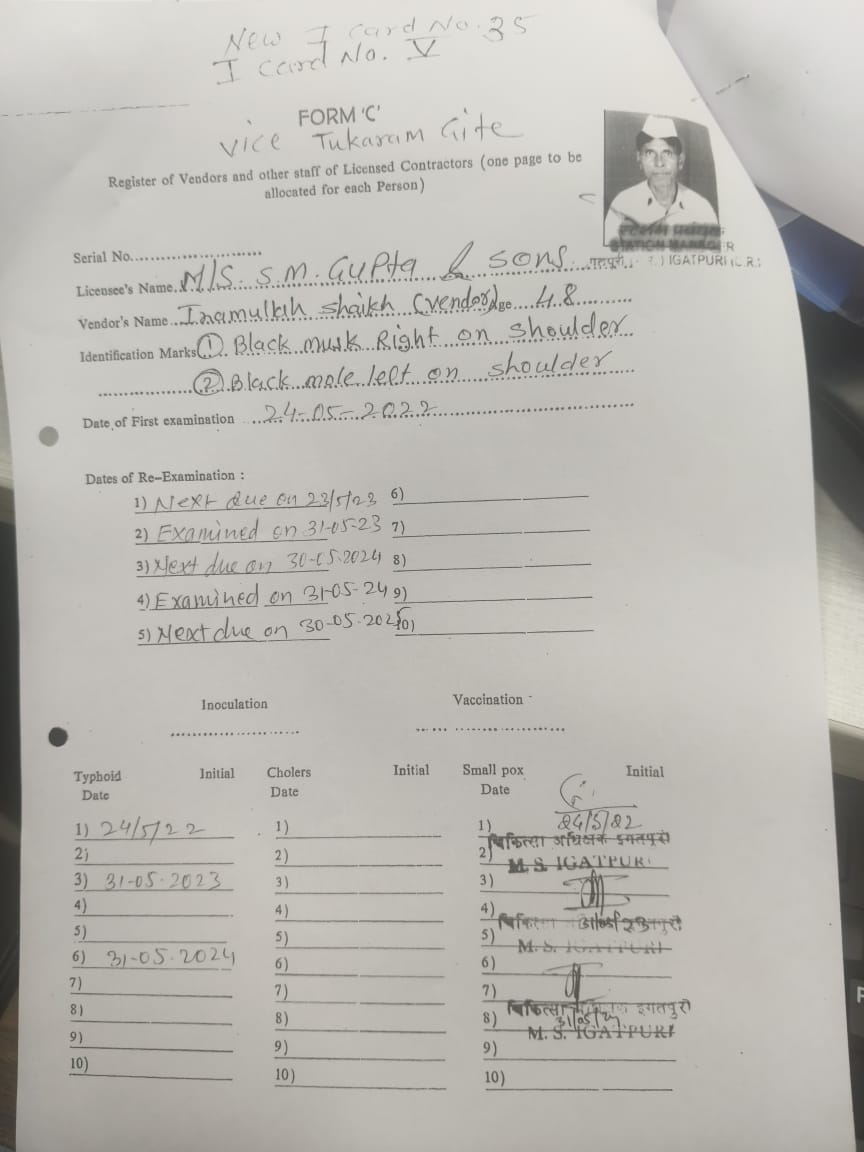 New I Card No. 35
I Card No. V
FORM 'C'
Vice Tukaram Gite
Register of Vendors and other staff of Licensed Contractors (one page to be
allocated for each Person)
STATION MANAGER
IGATPURI (C.R.)
Serial No.
Licensee's Name M/S. S.M. Gupta & sons
Vendor's Name Inamullah Shaikh (vendor) Age 48
Identification Marks ① Black musk Right on shoulder
② Black mole left on shoulder
Date of First examination 24-05-2022
Dates of Re-Examination :
1) Next due on 23/5/23 6)
2) Examined on 31-05-23 7)
3) Next due on 30-05-2024 8)
4) Examined on 31-05-24 9)
5) Next due on 30-05-2025 10)
Inoculation Vaccination
Typhoid Initial Cholers Initial Small pox Initial
Date Date Date
1) 24/5/22 1) 1) 24/5/22
चिकित्सा अधिक्षक इगतपुरी
2) 2) 2) M. S. IGATPURI
3) 31-05-2023 3) 3)
4) 4) 4) 31/05/23
5) 5) 5) M. S. IGATPURI
6) 31-05-2024 6) 6)
7) 7) 7)
चिकित्सा इगतपुरी
8) 8) 8) 31/05/24
M. S. IGATPURI
9) 9) 9)
10) 10) 10)